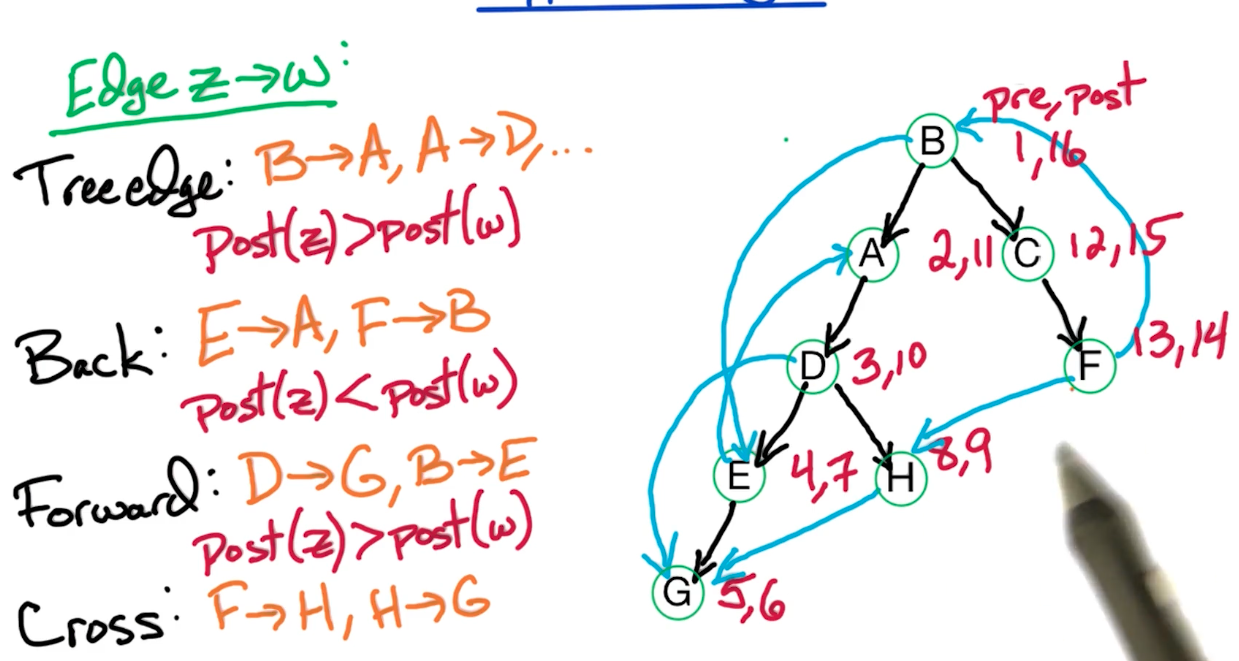 Edge z→w:
Tree edge: B→A, A→D,...
post(z)>post(w)
Back: E→A, F→B
post(z)<post(w)
Forward: D→G, B→E
post(z)>post(w)
Cross: F→H, H→G
pre,post
B 1,16
A 2,11
C 12,15
D 3,10
F 13,14
E 4,7
H 8,9
G 5,6